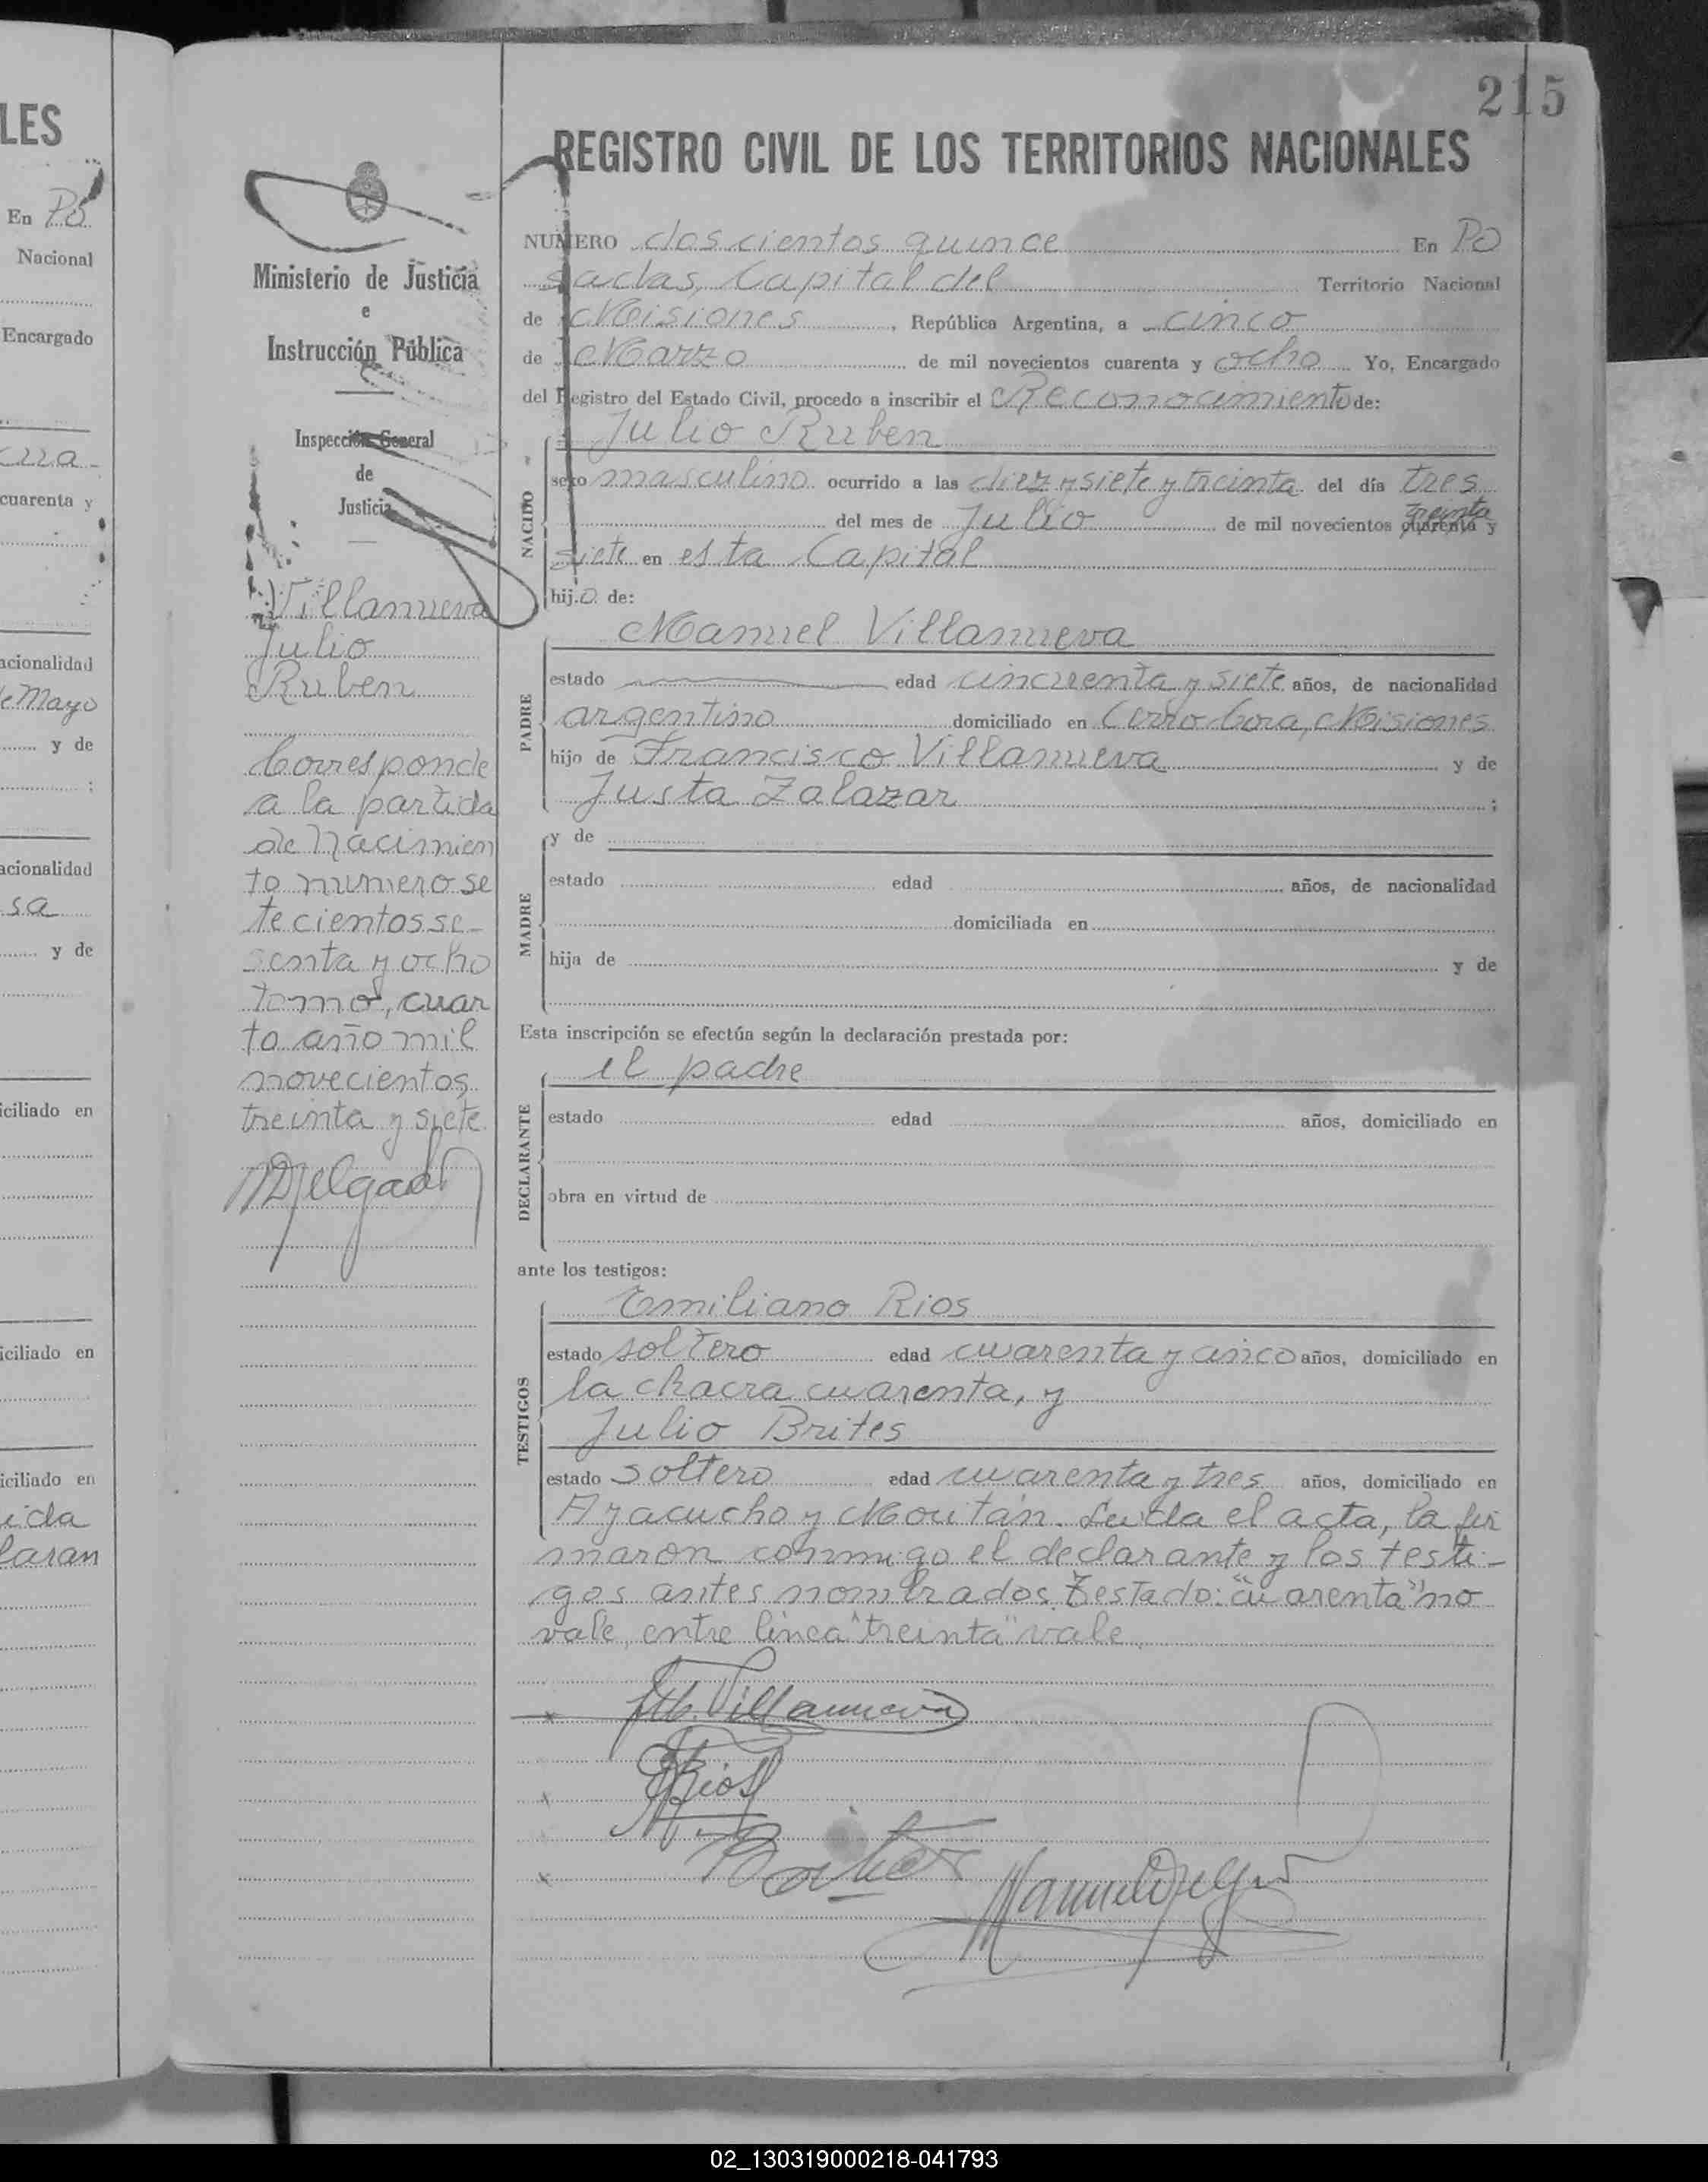 LES
En Po
Nacional
Encargado
cuarenta y
acionalidad
de Mayo
y de
;
acionalidad
sa
y de
iciliado en
iciliado en
iciliado en
215
REGISTRO CIVIL DE LOS TERRITORIOS NACIONALES
Ministerio de Justicia
e
Instrucción Pública
Inspección General
de
Justicia
Villanueva
Julio
Ruben
Corresponde
a la partida
de Nacimien
to numero se
tecientos se-
senta y ocho
tomo, cuar
to año mil
novecientos
treinta y siete.
MDelgado
NUMERO doscientos quince En Po
sadas, Capital del Territorio Nacional
de Misiones, República Argentina, a cinco
de Marzo de mil novecientos cuarenta y ocho Yo, Encargado
del Registro del Estado Civil, procedo a inscribir el Reconocimiento de:
Julio Ruben
NACIDO
sexo masculino ocurrido a las diez y siete y treinta del día tres
treinta
del mes de Julio de mil novecientos cuarenta y
siete en esta Capital
hijo de:
Manuel Villanueva
PADRE
estado edad cincuenta y siete años, de nacionalidad
argentino domiciliado en Cerro Cora, Misiones
hijo de Francisco Villanueva y de
Justa Zalazar ;
MADRE
y de
estado edad años, de nacionalidad
domiciliada en
hija de y de
Esta inscripción se efectúa según la declaración prestada por:
el padre
DECLARANTE
estado edad años, domiciliado en
obra en virtud de
ante los testigos:
TESTIGOS
Emiliano Rios
estado soltero edad cuarenta y cinco años, domiciliado en
la chacra cuarenta, y
Julio Brites
estado soltero edad cuarenta y tres años, domiciliado en
Ayacucho y Moritán. Leída el acta, la fir
maron conmigo el declarante y los testi-
gos antes nombrados. Testado: "cuarenta" no
vale, entre línea "treinta" vale.
Villanueva
ERios
Manuel Delgado
02_130319000218-041793